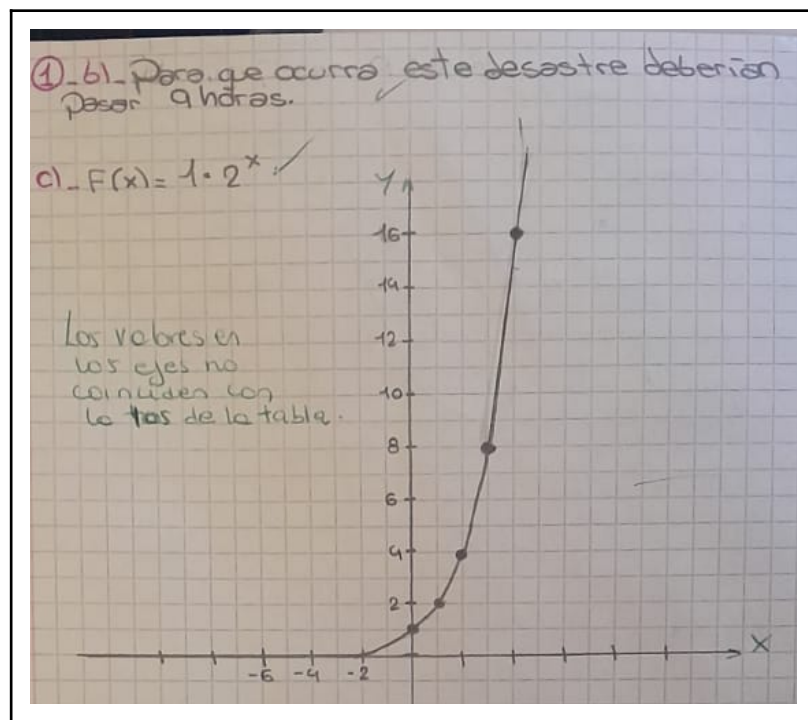 ①-b)- Para que ocurra este desastre deberían
pasar 9 horas.
c)- F(x)= 1·2^x
Los valores en
los ejes no
coinciden con
los de la tabla.
Y
16
14
12
10
8
6
4
2
-6 -4 -2
X